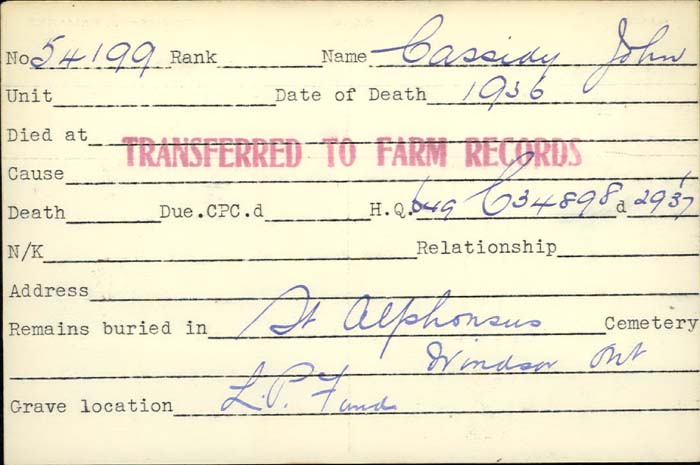 No 54199 Rank Name Cassidy John
Unit Date of Death 1936
Died at
TRANSFERRED TO FARM RECORDS
Cause
Death Due.CPC.d H.Q. 649 C34898 d 2937
N/K Relationship
Address
Remains buried in St Alphonsus Cemetery
Windsor Ont
Grave location L.P. Fund